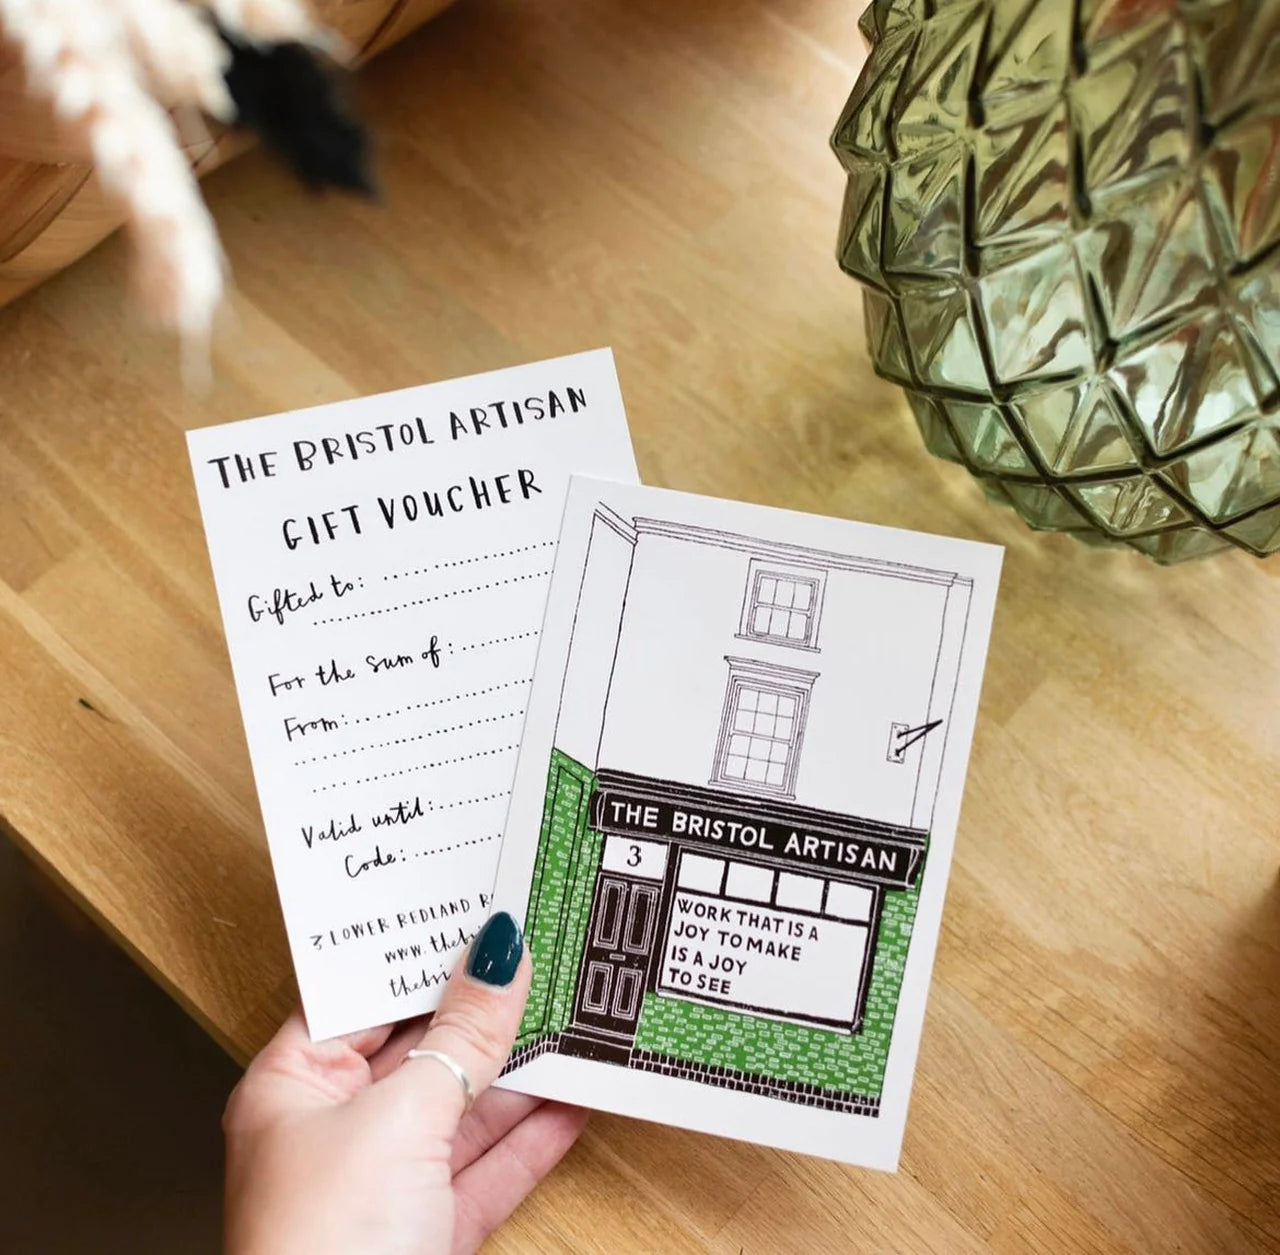 THE BRISTOL ARTISAN
GIFT VOUCHER
Gifted to:
For the sum of:
From:
Valid until:
Code:
3 LOWER REDLAND
THE BRISTOL ARTISAN
3
WORK THAT IS A
JOY TO MAKE
IS A JOY
TO SEE